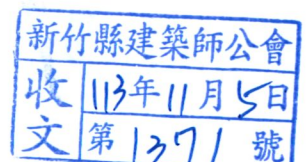 新竹縣建築師公會
收文
113年11月5日
第1371號